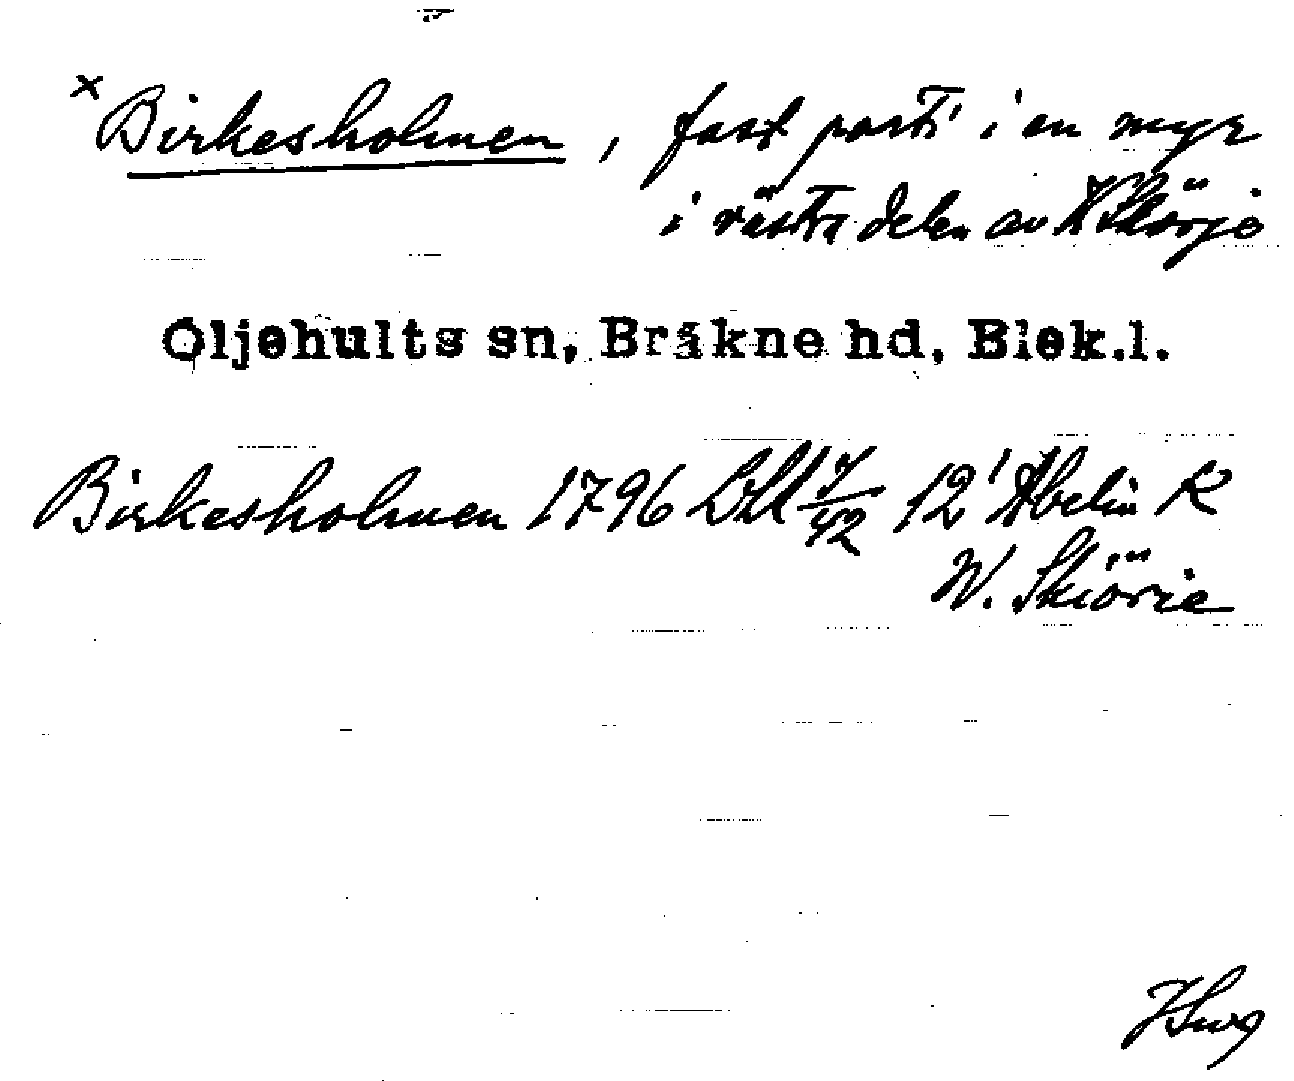 × Birkesholmen, fast parti i en myr
i västra delen av V Skörje
Öljehults sn, Bräkne hd, Blek.l.
Birkesholmen 1796 7/42 12' Abelin K
W. Skiörie